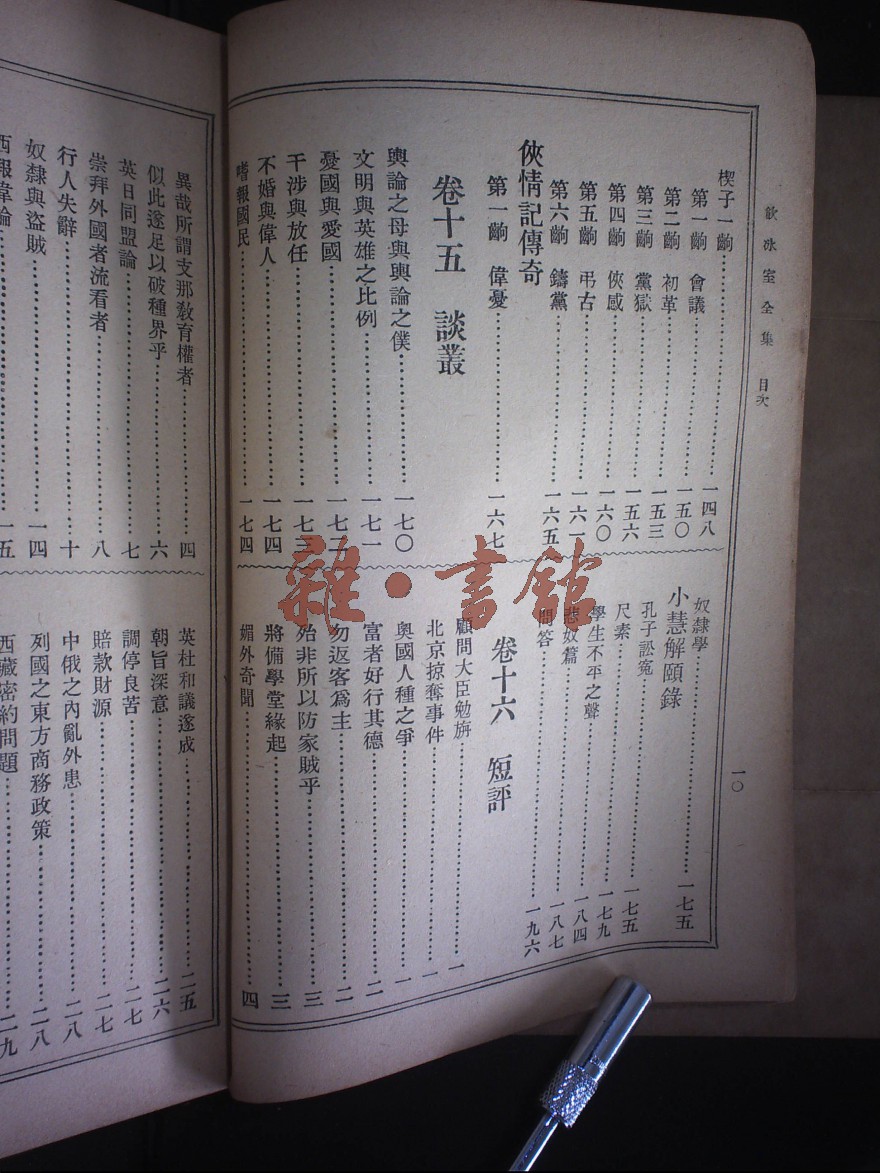 飲冰室全集 目次 一〇
楔子一齣……一四八
第一齣 會議……一五〇
第二齣 初革……一五三
第三齣 黨獄……一五六
第四齣 俠感……一六〇
第五齣 弔古……一六一
第六齣 鑄黨……一六五
俠情記傳奇
第一齣 偉憂……一六七
卷十五 談叢
輿論之母與輿論之僕……一七〇
文明與英雄之比例……一七一
憂國與愛國……一七二
干涉與放任……一七三
不婚與偉人……一七四
嗜報國民……一七四
奴隸學……一七五
小慧解頤錄
孔子訟寃……一七五
尺素……一七九
學生不平之聲……一八四
悲奴篇……一八七
問答……一九六
卷十六 短評
顧問大臣勉旃……一
北京掠奪事件……一
奧國人種之爭……一
富者好行其德……二
勿返客爲主……二
殆非所以防家賊乎……三
將備學堂緣起……三
媚外奇聞……四
異哉所謂支那敎育權者……四
似此遂足以破種界乎……六
英日同盟論……七
崇拜外國者流看者……八
行人失辭……十
奴隸與盜賊……一四
西報偉論……一五
英杜和議遂成……二五
朝旨深意……二六
調停良苦……二七
賠款財源……二七
中俄之內亂外患……二八
列國之東方商務政策……二八
西藏密約問題……二九
雜·書館